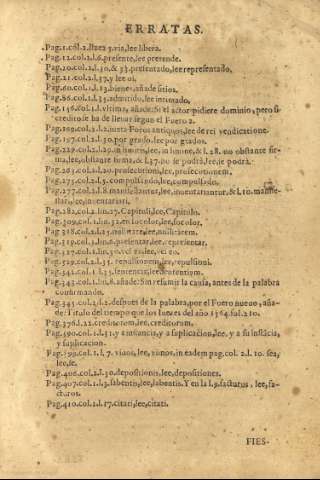 ERRATAS.
Pag.1.col.2. lib era, lee libera.
Pag.12.col.2.l.6.presente, lee pretende.
Pag.20.col.2.l.30.& 33.presentado, lee representado.
Pag.21.col.2.l.37.y lee oi.
Pag.60.col.1.l.13.bienes, añade sitios.
Pag.86.col.1.l.35.admitido, lee intimado.
Pag.146.col.1.l.vltima, añade: Si el actor pidiere dominio, pero si
credito se ha de lleuar segun el Fuero 2.
Pag.189.col.2.l.2.iuxta Foros antiquos, lee de rei vendicatione.
Pag.197.col.2.l.30.por grado, lee por grados.
Pag.229.col.2.l.29.in limites, lee in limine, & l.28. no obstante fir-
ma, lee, obstante firma, & l.37.no se podrà, lee, se podrà.
Pag.263.col.2.l.20.prosecutioni, lee, prosecutionem.
Pag.273.col.2.l.5.compulsando, lee, compulsado.
Pag.277.col.2.l.8.manifestantur, lee, inuentariantur, & l.10. manifes-
tari, lee, inuentariari.
Pag.282.col.2.lin.27.Capituli, lee, Capitulo.
Pag.309.col.1.lin.32.focular, lee, focolor.
Pag.318.col.2.l.15. lee, militarem.
Pag.319.col.3.lin.6.presentar, lee, representar.
Pag.327.col.1.lin.30. lee, vezino.
Pag.329.col.2.l.35. lee, repulsioni.
Pag.342.col.1.l.35.sentenciar, lee,
Pag.343.col.1.lin.6.añade: Sin resumir la causa, antes de la palabra
confirmando.
Pag.345.col.2.l.2.despues de la palabra, por el Fuero nueuo, aña-
de: Titulo del tiempo que los Iuezes del año 1564.fol.210.
Pag.376.l.22.creditorem, lee, creditorum.
Pag.390.col.1.l.31.y a instancis, y a suplicacion, lee, y a su instãcis,
y suplicacion.
Pag.399.col.1.l.7. vianos, lee, vamos, in eadem pag. col. 2.l.10. sea,
lee, se.
Pag.406.col.2.l.30.depositionis, lee, depositiones.
Pag.407.col.1.l.3.habentis, lee, labentis. Y en la l.9.facturus, lee, fa-
cturos.
Pag.410.col.2.l.17.citati, lee, citati.
FIES-